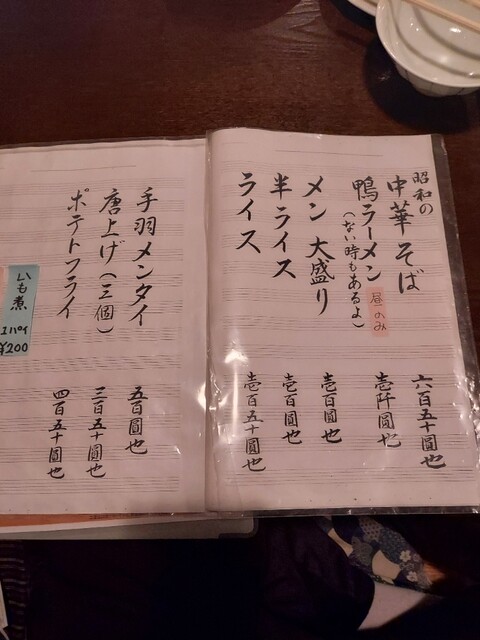 昭和の
中華そば 六百五十圓也
鴨ラーメン 壱阡圓也
(ない時もあるよ)
昼のみ
メン 大盛り 壱百圓也
半ライス 壱百圓也
ライス 壱百五十圓也
手羽メンタイ 五百圓也
唐上げ(三個) 三百五十圓也
ポテトフライ 四百五十圓也
いも煮
¥200